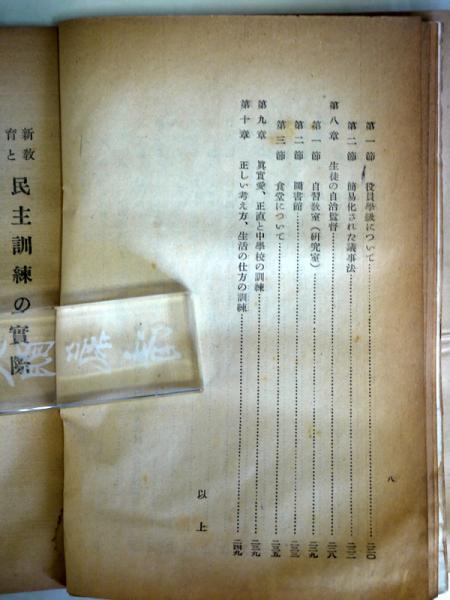 第一節 役員學級について…………二二〇
第二節 簡易化された議事法…………二二二
第八章 生徒の自治監督…………二二八
第一節 自習教室(研究室)…………二二九
第二節 圖書館…………二三三
第三節 食堂について…………二三五
第九章 眞實愛、正直と中學校の訓練…………二三九
第十章 正しい考え方、生活の仕方の訓練…………二四九
以上
八
新教育と 民主訓練の實際